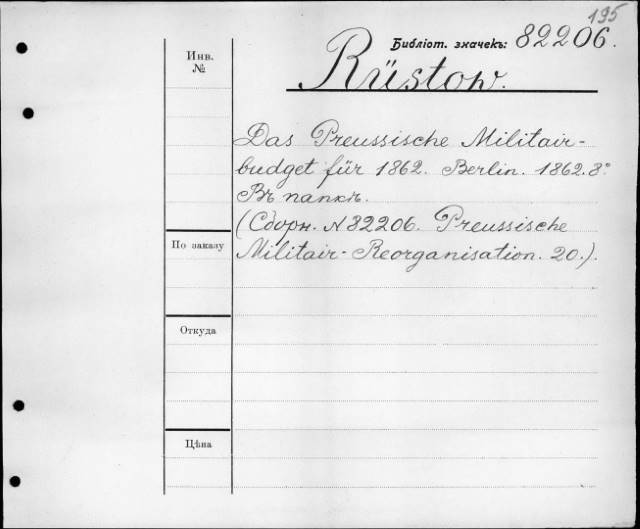 195
Библіот. значекъ: 82206.
Инв.
№
Rüstow.
Das Preussische Militair-
budget für 1862. Berlin. 1862. 8°
Въ папкѣ.
(Сборн. N 82206. Preussische
Militair-Reorganisation. 20.).
По заказу
Откуда
Цѣна